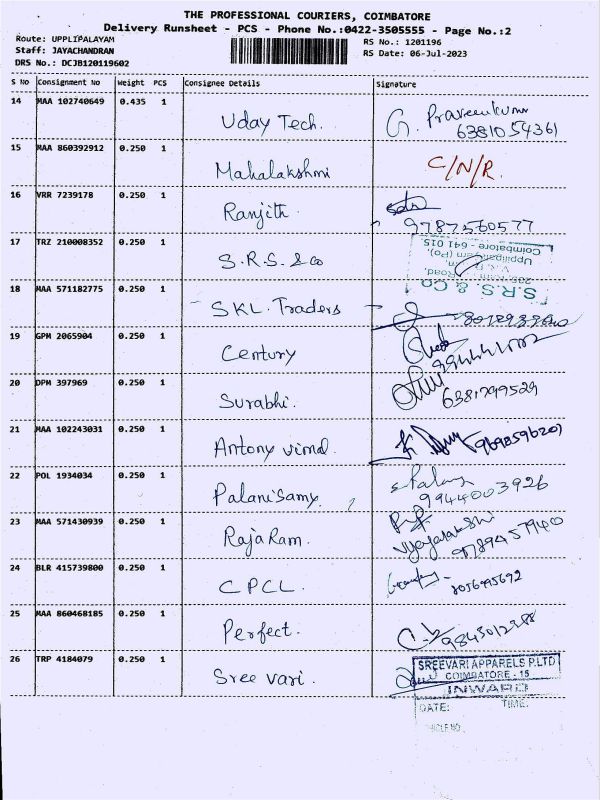 THE PROFESSIONAL COURIERS, COIMBATORE
Delivery Runsheet - PCS - Phone No.:0422-3505555 - Page No.:2
Route: UPPLIPALAYAM
RS No.: 1201196
Staff: JAYACHANDRAN
RS Date: 06-Jul-2023
DRS No.: DCJB120119602
S No Consignment No Weight PCS Consignee Details Signature
14 MAA 102740649 0.435 1 Uday Tech. G. Praveenkumar
6381054361
15 MAA 860392912 0.250 1 Mahalakshmi C/N/R.
16 VRR 7239178 0.250 1 Ranjith
9787560577
17 TRZ 210008352 0.250 1 S.R.S. & Co
S.R.S. & CO
Uppilipalayam (Po),
Coimbatore - 641 015.
18 MAA 571182775 0.250 1 SKL Traders
19 GPM 2065904 0.250 1 Century
20 DPM 397969 0.250 1 Surabhi. 6381799529
21 MAA 102243031 0.250 1 Antony vimal. 9698596201
22 POL 1934034 0.250 1 Palanisamy.
9944003926
23 MAA 571430939 0.250 1 RajaRam.
Vijayalakshmi
9789457940
24 BLR 415739800 0.250 1 CPCL. 8056995692
25 MAA 860468185 0.250 1 Perfect.
26 TRP 4184079 0.250 1 Sree vari.
SREEVARI APPARELS P.LTD
COIMBATORE - 15
INWARD
DATE: TIME: